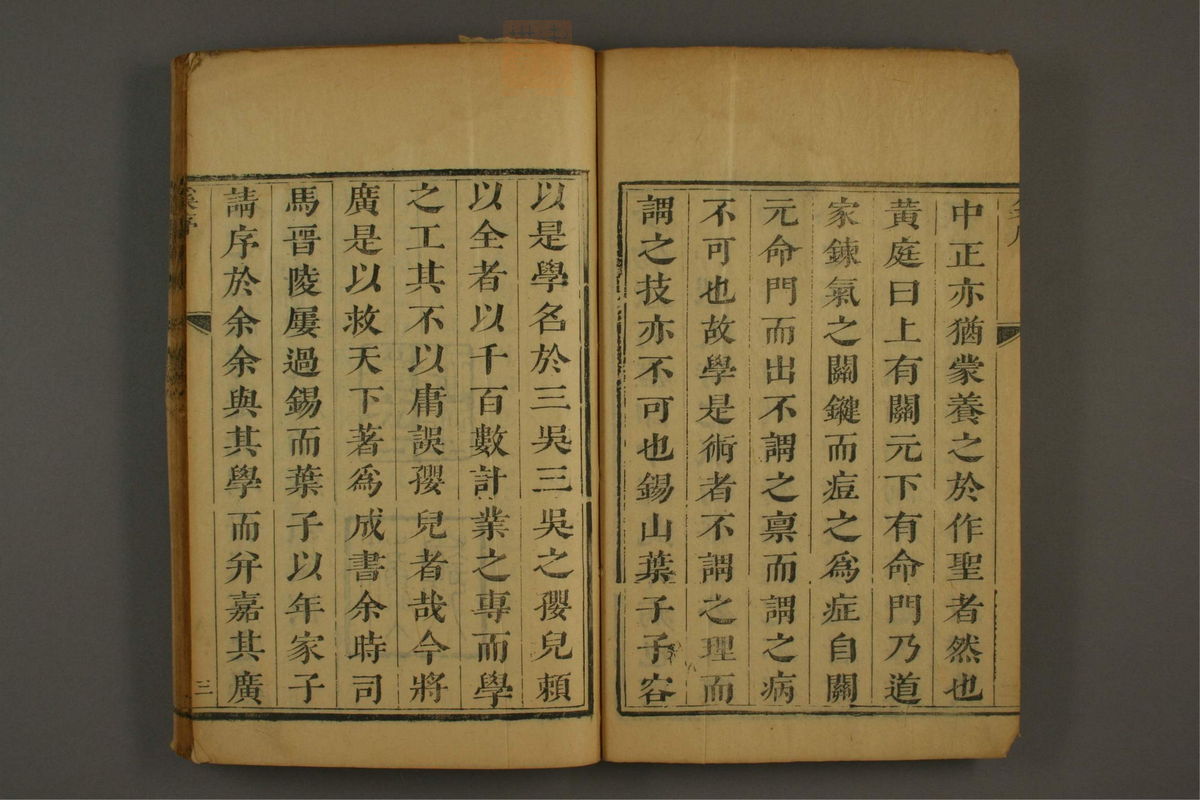 中正亦猶蒙養之於作聖者然也
黃庭曰上有關元下有命門乃道
家鍊氣之關鍵而痘之爲症自關
元命門而出不謂之禀而謂之病
不可也故學是術者不謂之理而
謂之技亦不可也錫山葉子子容
以是學名於三吳三吳之孾兒賴
以全者以千百數計業之專而學
之工其不以庸誤孾兒者哉今將
廣是以救天下著爲成書余時司
馬晋陵屢過錫而葉子以年家子
請序於余余與其學而弁嘉其廣
三